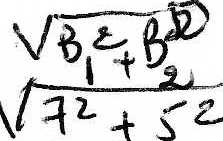 √B₁² + B₂²
√7² + 5²